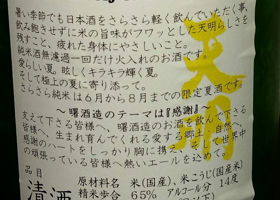 暑い季節でも日本酒をさらさら軽く飲んでいただく事、
飲み飽きせずに米の旨味がフワッとした天明らしさを
残すこと、疲れた身体にやさしいこと。
純米酒無濾過一回だけ火入れのお酒です。
愛らしい夏。眩しくキラキラ輝く夏。
そして極上の夏に寄り添って。
さらさら純米は6月から8月までの限定夏酒です。
～曙酒造のテーマは『感謝』～
支えて下さる皆様へ、曙酒造のお酒を飲んで下さる
皆様へ、生まれ育んでくれる愛する郷土、自然へ、
感謝のハートをしっかり胸に携え、そして世界中
の頑張っている皆様へ熱いエールを込めて。
天明
品目
清酒
原材料名 米(国産)、米こうじ(国産米)
精米歩合 65% アルコール分 14度